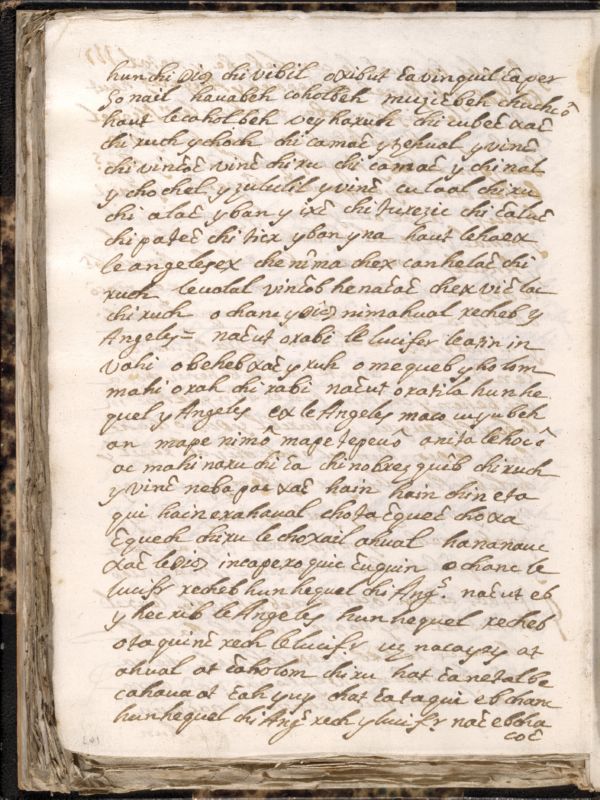 hun chi Dios chi vibil oxibut ẽavinquil ẽa per
sonail hauabeh coholbeh muziẽbeh chuchiõ
haut lecoholbeh veyhaxuth chi cubeẽ xaẽ
chi ruch y choch chi camaẽ y tzhual y vinẽ
chi vintoẽ vinẽ chi ru chi camaẽ y chi nal
y chochel y zululil y vinẽ cu laal chi ru
chi alaẽ y ban y ixẽ chi tuxezic chi ẽaluẽ
chi pateẽ chi ticx y ban y na haut lehaex
le angelesex che nima chex canhelaẽ chi
ruch levalal vintob he naẽaẽ chex viẽ laẽ
chi ruch ochanc y Dios nimahual recheb y
Angeles = naẽut oxabi le lucifer leazin in
vahi obeheb xaẽ y ruh omequeb y holom
mahi oxah chi rabi naẽut oxatila hun he
quel y Angeles ex le Angeles maco uyubeh
on mape nimõ mape tepeuõ anita lehocõ
ac mahi naru chi ẽa chi nobres quib chi ruch
y vinẽ neba pac xaẽ hain hain chin eta
qui hain exahaual chota ẽqueẽ choxa
ẽquech chiru le choxail ahual hananauc
xaẽ le Dios incapexoquic ẽuquin ochanc le
lucifr recheb hun hequel chi Angs. naẽut eb
y hecxib le Angeles hun hequel recheb
ota quinẽ rech le lucifr uz nacayzy at
ahual at ẽaholom chiru hat ẽanetalbe
cahaua at ẽah yuy chat ẽataqui eb chanc
hun hequel chi Angs rech y lucifr. naẽ ebcha
coẽ